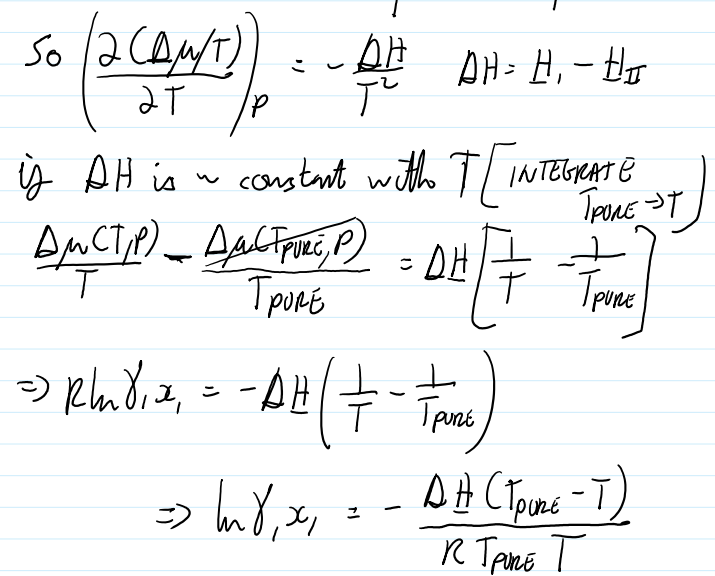 So (∂(Δμ/T)/∂T)_P = - ΔH/T² ΔH = H_I - H_II
if ΔH is ~ constant with T [INTEGRATE T_PURE → T]
Δμ(T,P)/T - Δμ(T_PURE,P)/T_PURE = ΔH [1/T - 1/T_PURE]
⇒ R ln γ₁x₁ = -ΔH (1/T - 1/T_PURE)
⇒ ln γ₁x₁ = - ΔH (T_PURE - T)/R T_PURE T